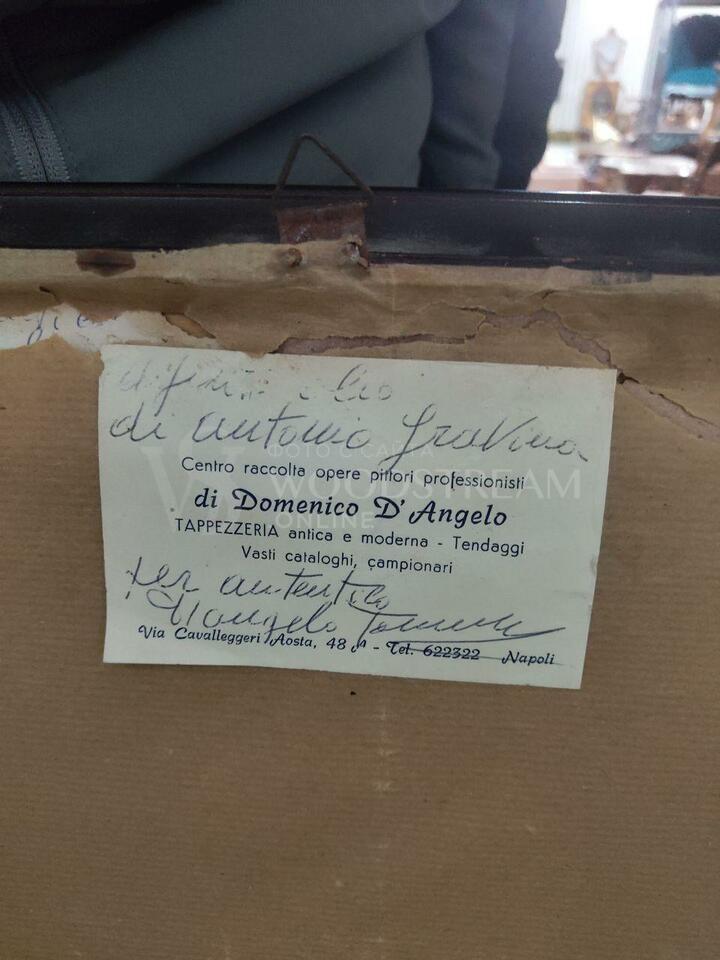 di antonio Gravina
Centro raccolta opere pittori professionisti
di Domenico D'Angelo
TAPPEZZERIA antica e moderna - Tendaggi
Vasti cataloghi, campionari
per autentica
D'angelo
Via Cavalleggeri Aosta, 48 - Tel. 622322 Napoli
ФОТО С САЙТА
WOODSTREAM
ONLINE